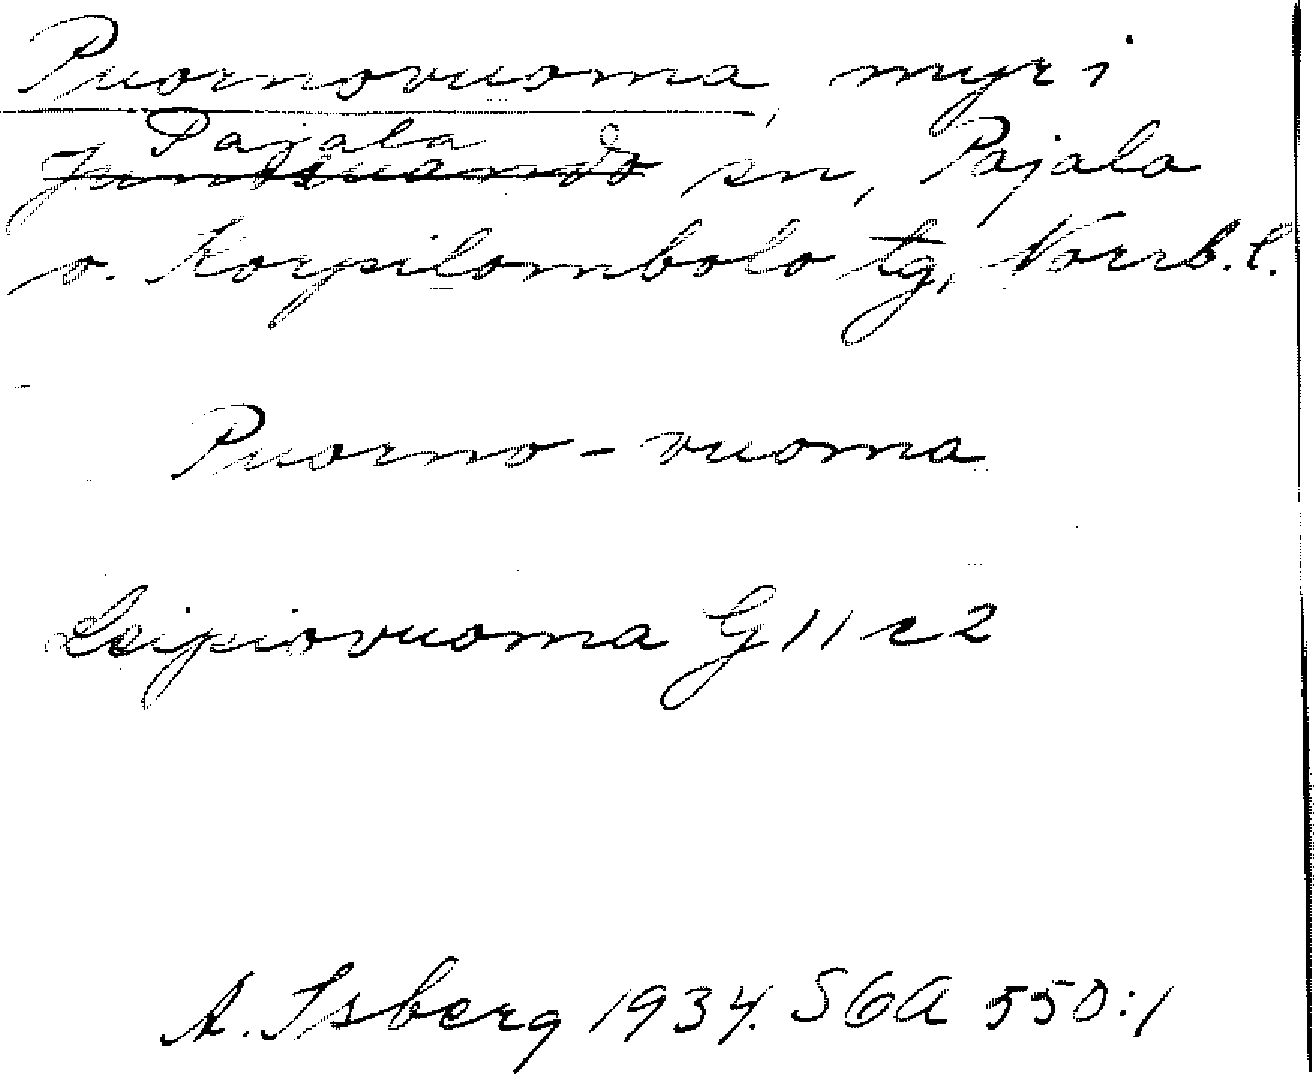 Puornovuoma, myr i
Pajala
Junosuando sn, Pajala
o. Korpilombolo tg, Norrb. l.
Puorno-vuoma
Leipiovuoma G 11 c 2
A. Isberg 1934. SGA 550:1